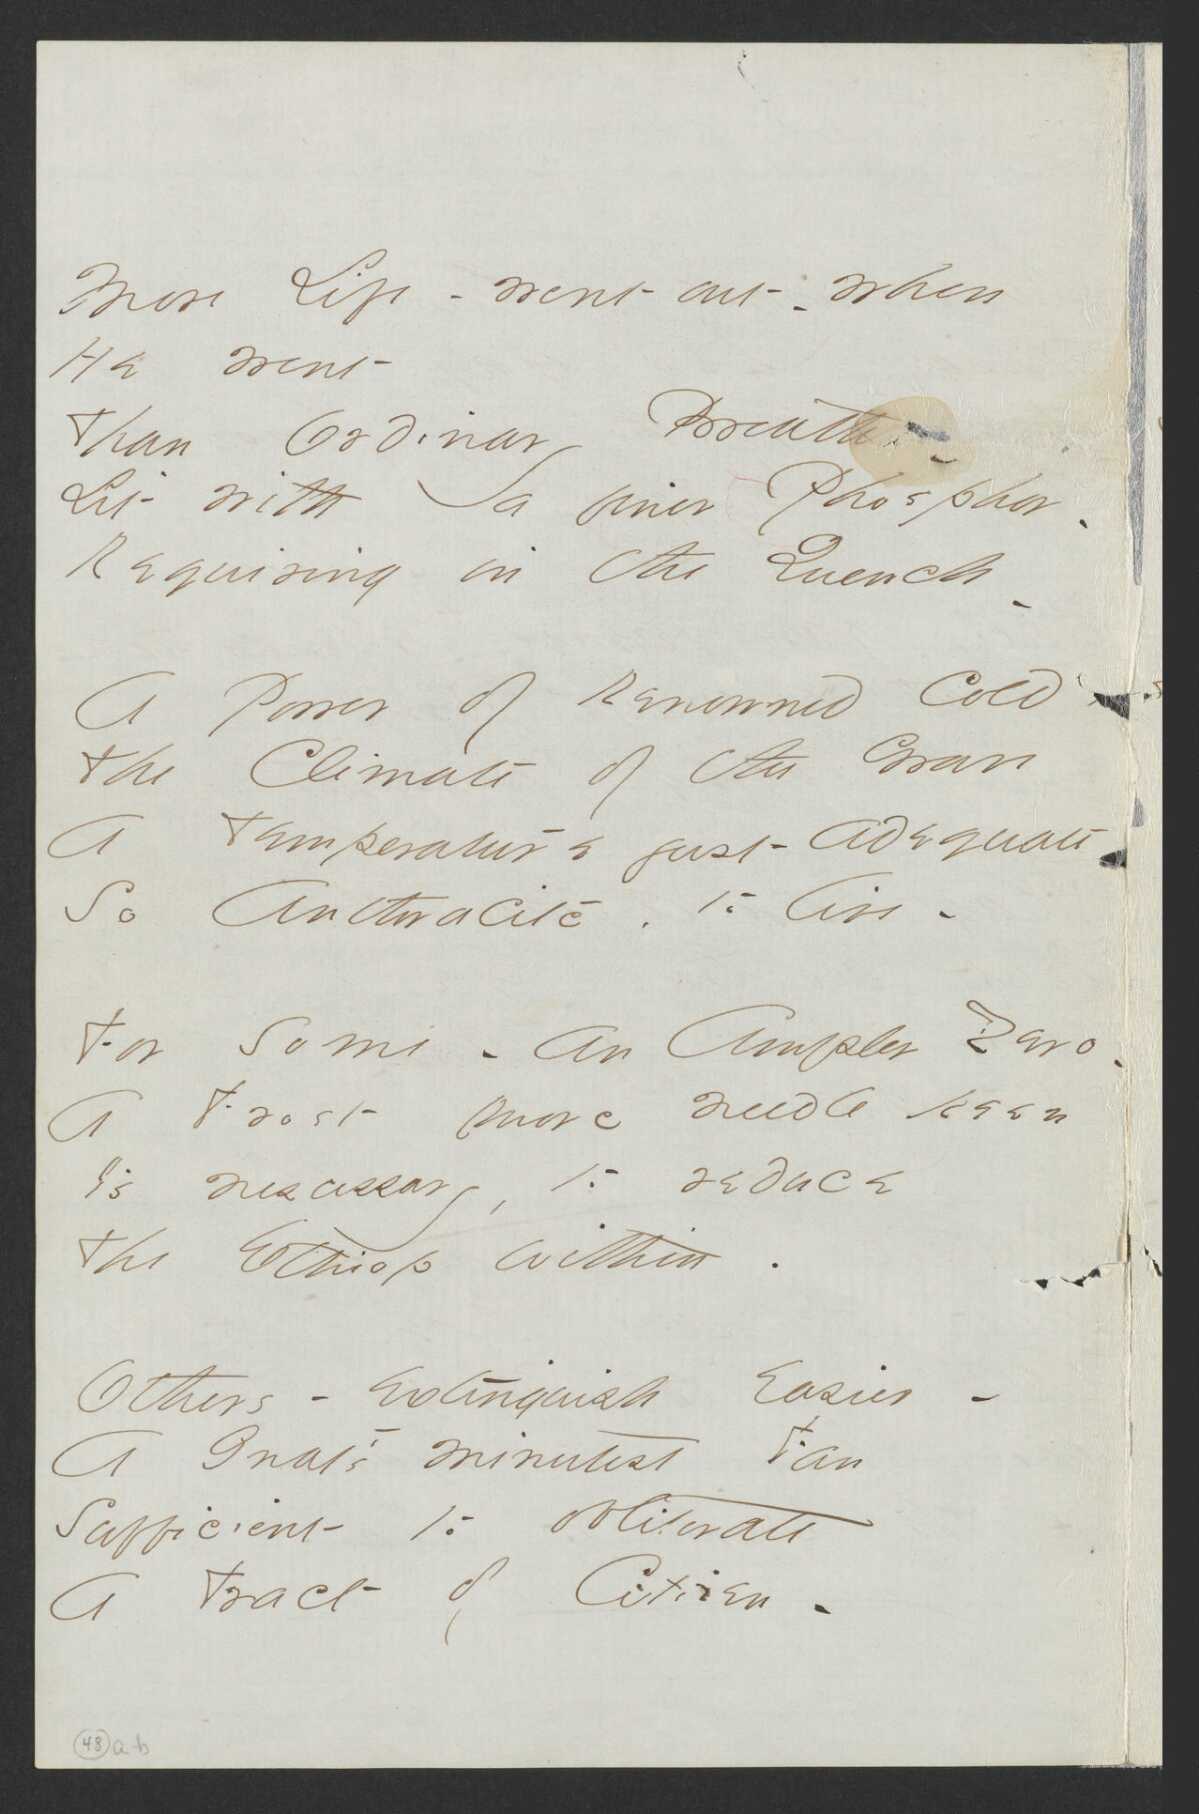 More Life - went out - when
He went
Than Ordinary Breath -
Lit with a finer Phosphor -
Requiring in the Quench -
A Power of Renowned Cold
The Climate of the Grave
A Temperature just adequate
So Anthracite - to live -
For Some - an Ampler Zero -
A Frost more needle keen
Is necessary, to reduce
The Ethiop within .
Others - Extinguish Easier -
A Gnat's minutest Fan
Sufficient to obliterate
A Tract of Citizen -
48 a-b